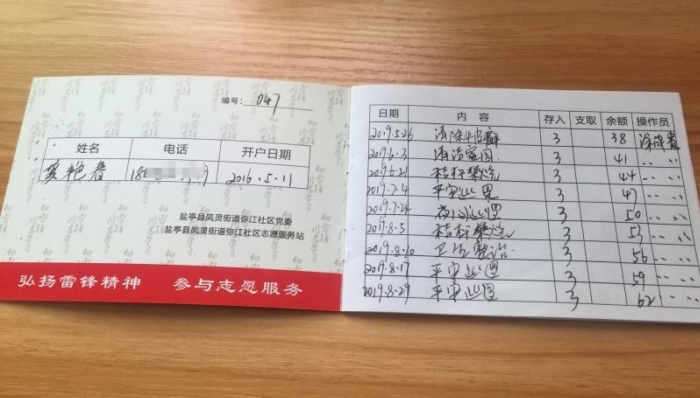 编号: 047
姓名 电话 开户日期
艳春 18 2016.5.11
盐亭县凤灵街道弥江社区党委
盐亭县凤灵街道弥江社区志愿服务站
弘扬雷锋精神 参与志愿服务
日期 内容 存入 支取 余额 操作员
2019.5.26 清除牛皮癣 3 38
2019.6.3 清洁家园 3 41 〃 〃
2019.6.21 秸秆禁烧 3 44 〃 〃
2019.7.4 平安巡逻 3 47 〃 〃
2019.7.24 夜间巡逻 3 50 〃 〃
2019.8.5 秸秆禁烧 3 53 〃 〃
2019.8.10 卫生整治 3 56 〃 〃
2019.8.17 平安巡逻 3 59 〃 〃
2019.8.29 平安巡逻 3 62 〃 〃